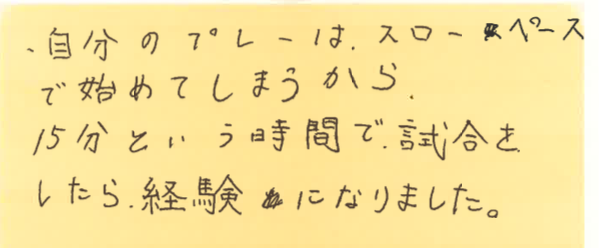 ・自分のプレーは、スローペース
で始めてしまうから、
15分という時間で、試合を
したら、経験になりました。